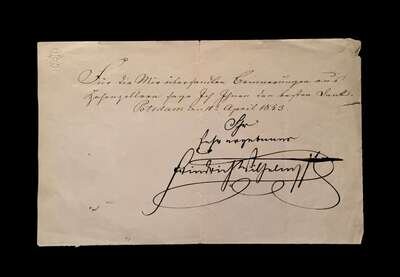 Für die Mir übersandten Erinnerungen aus
Hohenzollern sage Ich Ihnen den besten Dank.
Potsdam den April 1853
Ihr
sehr ergebener
Friedrich Wilhelm